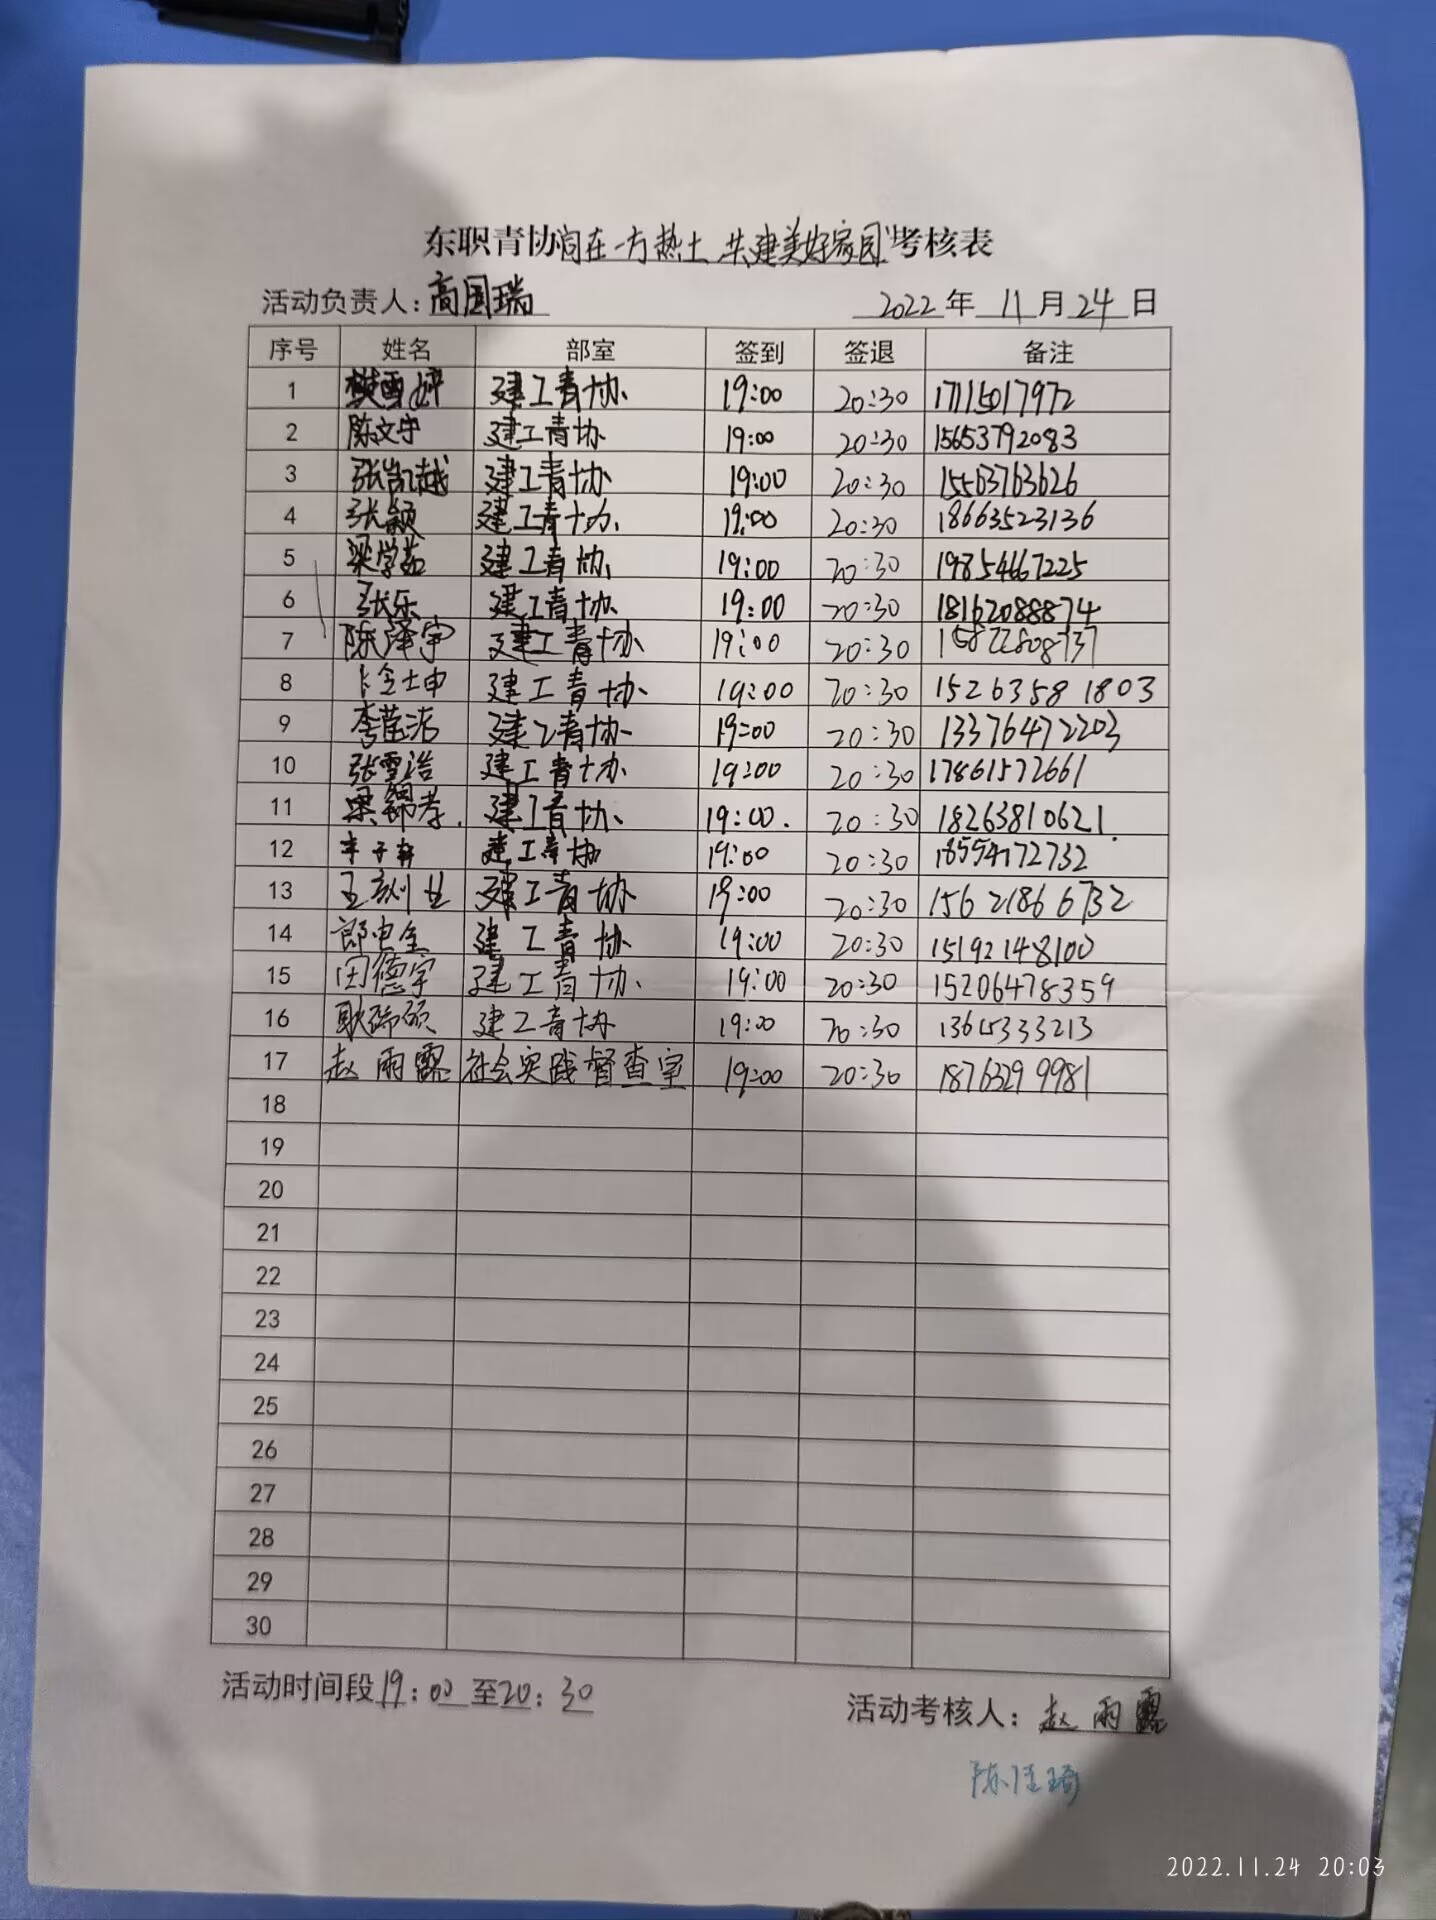 东职青协"同在一方热土 共建美好家园"考核表
活动负责人：高国瑞 2022年 11月24日
序号 姓名 部室 签到 签退 备注
1 樊雪婷 建工青协 19:00 20:30 17115017972
2 陈文宇 建工青协 19:00 20:30 15653792083
3 张凯越 建工青协 19:00 20:30 15563763626
4 张颖 建工青协 19:00 20:30 18663523136
5 梁学茹 建工青协 19:00 20:30 19854667225
6 张乐 建工青协 19:00 20:30 18162088874
7 陈泽宇 建工青协 19:00 20:30 15822808737
8 建工青协 19:00 20:30 15263581803
9 李莹洁 建工青协 19:00 20:30 13376472203
10 张雪浩 建工青协 19:00 20:30 17861572661
11 梁锦孝 建工青协 19:00 20:30 18263810621
12 建工青协 19:00 20:30 18554172732
13 建工青协 19:00 20:30 15621866732
14 建工青协 19:00 20:30 15192148100
15 田德宇 建工青协 19:00 20:30 15206478359
16 耿瑞硕 建工青协 19:00 20:30 13615333213
17 赵雨露 社会实践督查室 19:00 20:30 18763299981
18
19
20
21
22
23
24
25
26
27
28
29
30
活动时间段19：00至20：30
活动考核人：赵雨露
2022.11.24 20:03